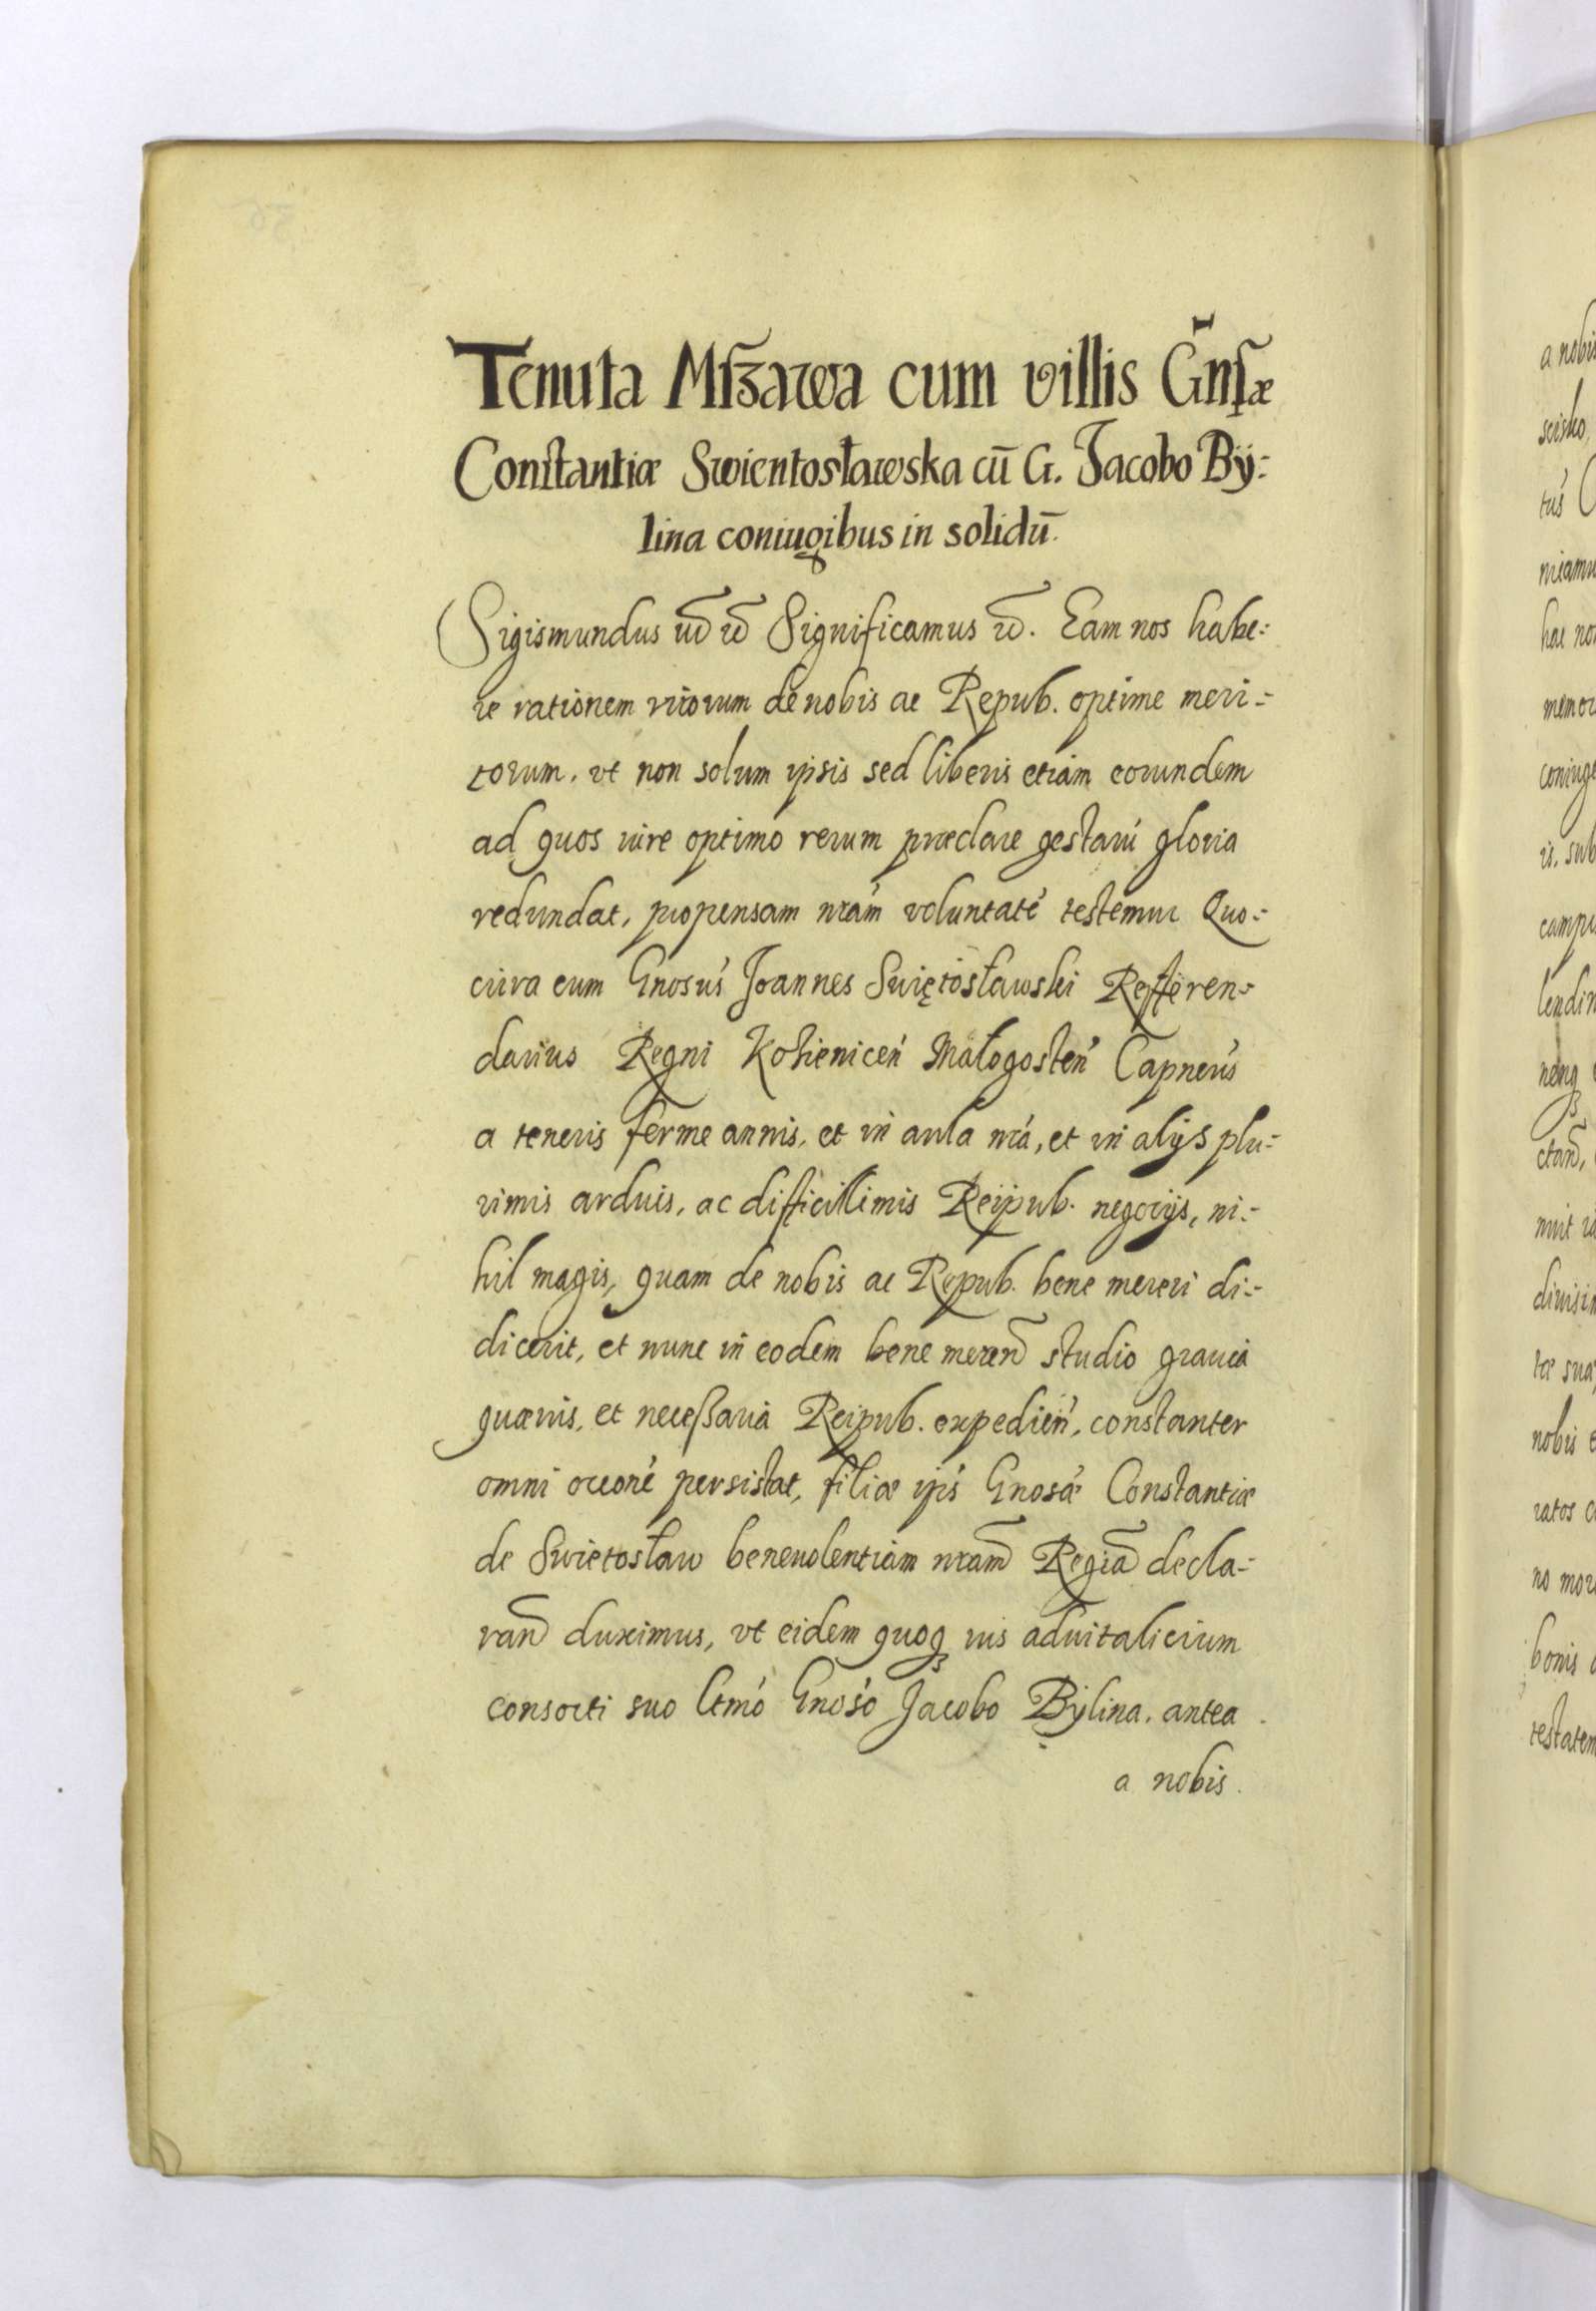 Tenuta Mſzawa cum villis G̅nſæ
Constantiæ Swientosławska cū G. Jacobo Bÿ:
lina coniugibus in solidū.
Sigismundus Significamus Eam nos habe:
re rationem virorum de nobis ac Repub. optime meri:
torum, vt non solum ipsis sed liberis etiam eorundem
ad quos iure optimo rerum præclare gestarú gloria
redundat, propensam nrám voluntaté testemur Quo:
circa cum Gnosús Joannes Swiętosławski Refferen:
darius Regni Kozieniceń Małogosteń Capneús
a teneris ferme annis, et in aula nrá, et in alijs plu:
rimis arduis, ac difficillimis Reipub. negocijs, ni:
hil magis, quam de nobis ac Repub. bene mereri di:
dicerit, et nunc in eodem bene meren̄ studio grauia
quæuis, et neceßaria Reipub. expedień, constanter
omni occoné persistat, filiæ ipś Gnosǽ Constantiæ
de Swietosław beneuolentiam nram̄ Regiā decla:
ran̄ duximus, vt eidem quoqꝫ ius aduitalicium
consorti suo Gnosó Jacobo Bÿlina, antea
a nobis.
a nobis
scisko,
tús
niamu
hac no
coniuge
is, sub
lendi
nobis
ratos
no mor
bonis
testatem